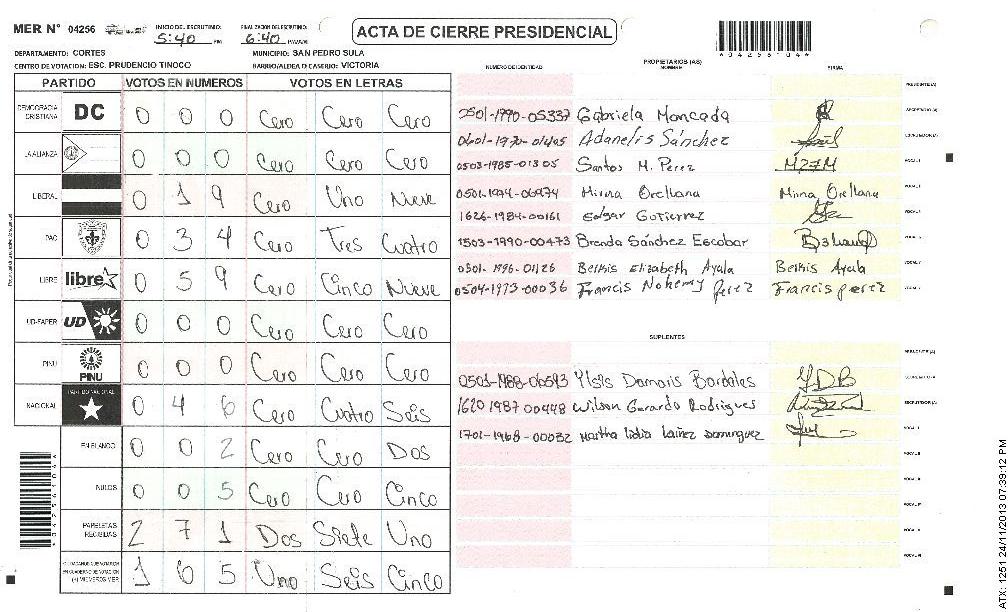 MER Nº 04256
INICIO DEL ESCRUTINIO: 5:40 PM
FINALIZACION DEL ESCRUTINIO: 6:40 PM/AM
ACTA DE CIERRE PRESIDENCIAL
*04256104*
DEPARTAMENTO: CORTES
MUNICIPIO: SAN PEDRO SULA
CENTRO DE VOTACION: ESC. PRUDENCIO TINOCO
BARRIO/ALDEA O CASERIO: VICTORIA
PARTIDO VOTOS EN NUMEROS VOTOS EN LETRAS
DEMOCRACIA CRISTIANA DC 0 0 0 Cero Cero Cero
LA ALIANZA 0 0 0 Cero Cero Cero
LIBERAL 0 1 9 Cero Uno Nueve
PAC 0 3 4 Cero Tres Cuatro
LIBRE libre 0 5 9 Cero Cinco Nueve
UD-FAPER UD 0 0 0 Cero Cero Cero
PINU PINU 0 0 0 Cero Cero Cero
NACIONAL PARTIDO NACIONAL 0 4 6 Cero Cuatro Seis
EN BLANCO 0 0 2 Cero Cero Dos
NULOS 0 0 5 Cero Cero Cinco
PAPELETAS RECIBIDAS 2 7 1 Dos Siete Uno
1 6 5 Uno Seis Cinco
(+) MIEMBROS MER
PROPIETARIOS (AS)
NUMERO DE IDENTIDAD NOMBRE FIRMA
PRESIDENTE (A)
0501-1990-05337 Gabriela Moncada SECRETARIO (A)
Adanelis Sánchez ESCRUTADOR (A)
0503-1985-01305 Santos M. Perez VOCAL I
0501-1974-06974 Mirna Orellana Mirna Orellana
1626-1984-00161 Edgar Gutierrez
1503-1990-00473 Brenda Sánchez Escobar
0501-1996-01126 Berkis Elizabeth Ayala Berkis Ayala
0504-1973-00036 Francis Nohemy perez Francis perez
SUPLENTES
PRESIDENTE (A)
0501-1988-00593 Ylsis Damaris Bardales YDB SECRETARIO/A
1620 1987 00448 Wilson Gerardo Rodrigues ESCRUTADOR (A)
1701-1968-00032 Martha lidia lainez Dominguez VOCAL I
ATX: 1251 24/11/2013 07:39:12 PM